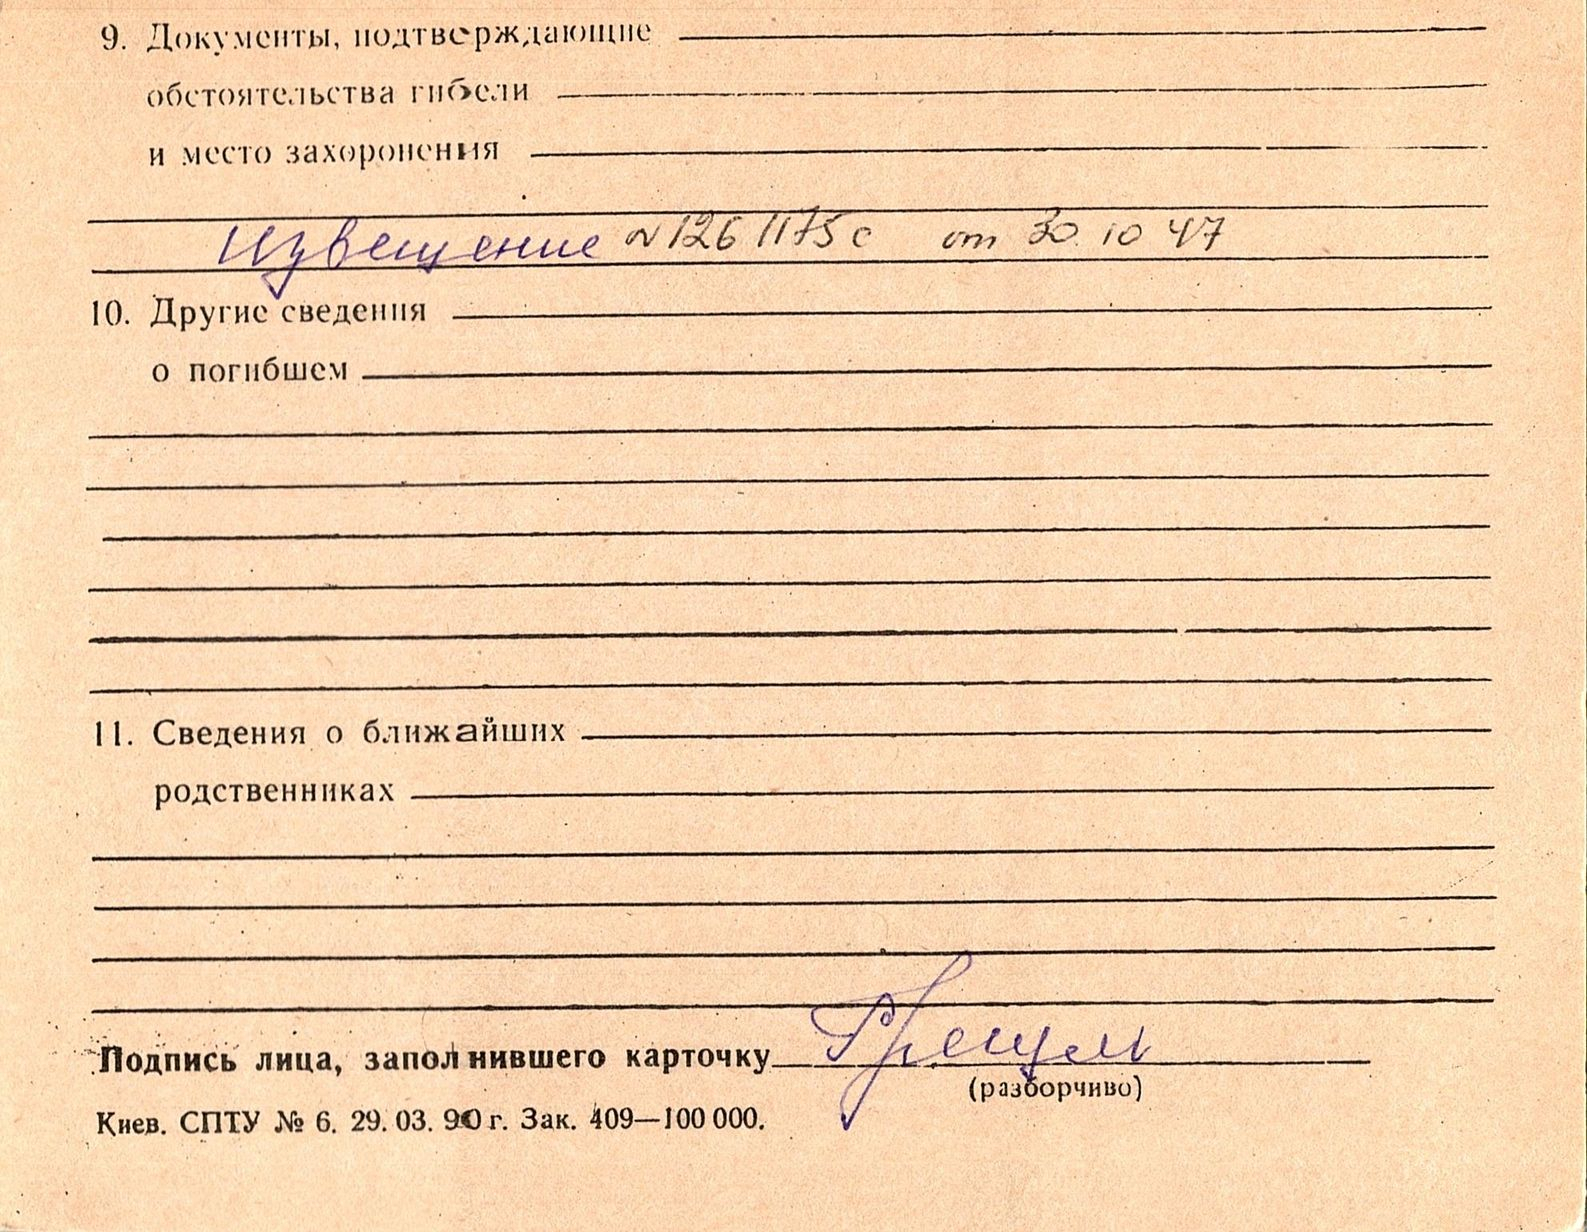 9. Документы, подтверждающие
обстоятельства гибели
и место захоронения
Извещение № 1261175с от 30 10 47
10. Другие сведения
о погибшем
11. Сведения о ближайших
родственниках
Подпись лица, заполнившего карточку
(разборчиво)
Киев. СПТУ № 6. 29. 03. 90 г. Зак. 409—100 000.